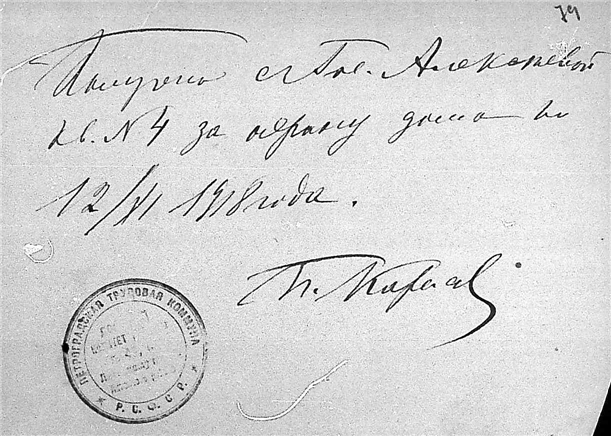 79
Получено с Гос. Алексеевой
кв. № 4 за охрану дома по
12/XI 1918 года.
ПЕТРОГРАДСКАЯ ТРУДОВАЯ КОММУНА
Р. С. Ф. С. Р.